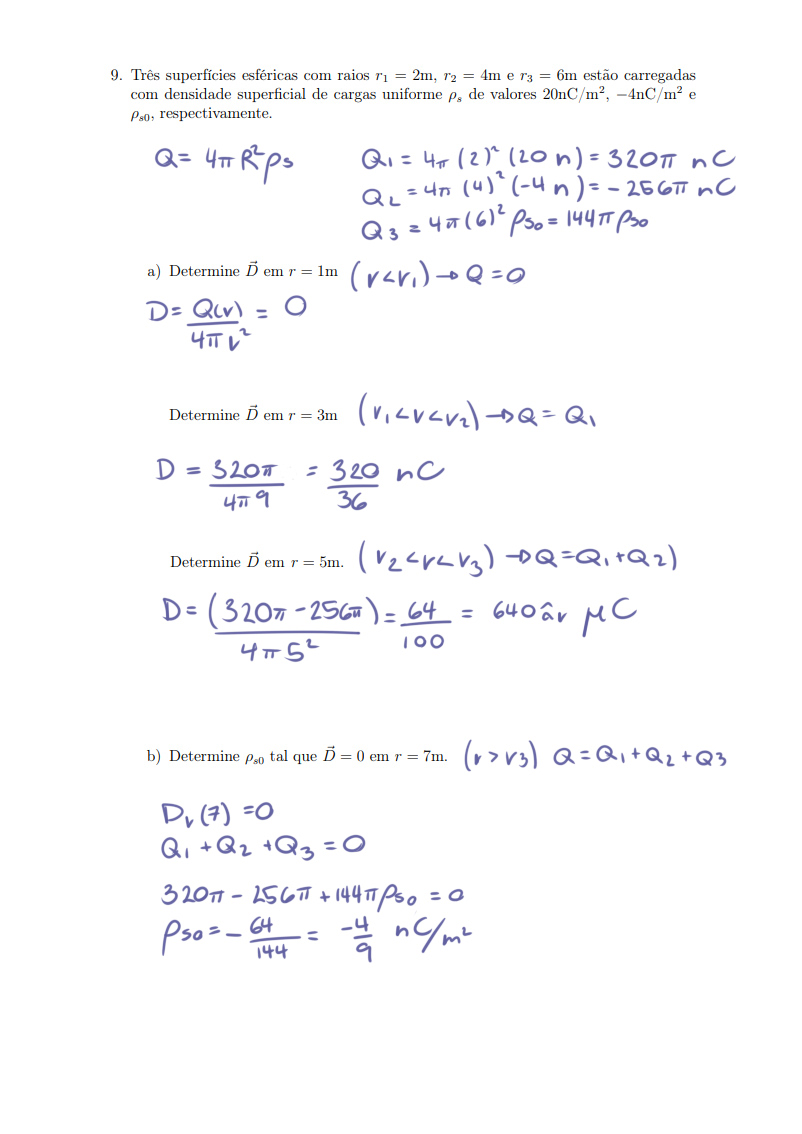 9. Três superfícies esféricas com raios r₁ = 2m, r₂ = 4m e r₃ = 6m estão carregadas
com densidade superficial de cargas uniforme ρₛ de valores 20nC/m², −4nC/m² e
ρₛ₀, respectivamente.
Q = 4π R² ρs
Q₁ = 4π (2)² (20 n) = 320π nC
Q₂ = 4π (4)² (-4 n) = - 256π nC
Q₃ = 4π (6)² ρso = 144π ρso
a) Determine D⃗ em r = 1m (r<r₁) → Q = 0
D = Q(r) / 4π r² = 0
Determine D⃗ em r = 3m (r₁<r<r₂) → Q = Q₁
D = 320π / 4π 9 = 320 / 36 nC
Determine D⃗ em r = 5m. (r₂<r<r₃) → Q = Q₁ + Q₂)
D = (320π - 256π) / 4π 5² = 64 / 100 = 640 âr μC
b) Determine ρₛ₀ tal que D⃗ = 0 em r = 7m. (r > r₃) Q = Q₁ + Q₂ + Q₃
Dᵣ (7) = 0
Q₁ + Q₂ + Q₃ = 0
320π - 256π + 144π ρso = 0
ρso = - 64 / 144 = -4 / 9 nC/m²